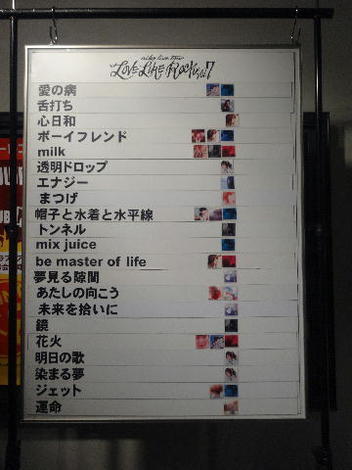 aiko live tour
LOVE LIKE ROCK vol.7
愛の病
舌打ち
心日和
ボーイフレンド
milk
透明ドロップ
エナジー
まつげ
帽子と水着と水平線
トンネル
mix juice
be master of life
夢見る隙間
あたしの向こう
未来を拾いに
鏡
花火
明日の歌
染まる夢
ジェット
運命